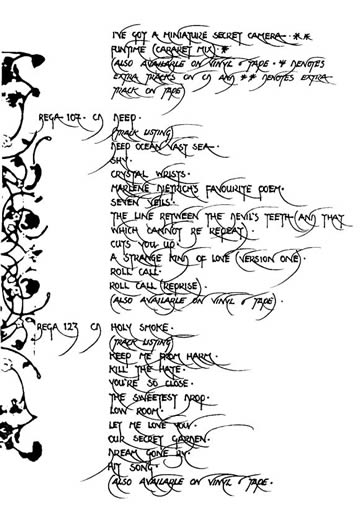 I'VE GOT A MINIATURE SECRET CAMERA · **
FUNTIME (CABARET MIX) · *
(ALSO AVAILABLE ON VINYL & TAPE · * DENOTES
EXTRA TRACKS ON CD AND ** DENOTES EXTRA
TRACK ON TAPE)
BEGA 107 · CD DEEP ·
(TRACK LISTING)
DEEP OCEAN VAST SEA ·
SHY ·
CRYSTAL WRISTS ·
MARLENE DIETRICH'S FAVOURITE POEM ·
SEVEN VEILS ·
THE LINE BETWEEN THE DEVIL'S TEETH (AND THAT
WHICH CANNOT BE REPEAT) ·
CUTS YOU UP ·
A STRANGE KIND OF LOVE (VERSION ONE) ·
ROLL CALL ·
ROLL CALL (REPRISE) ·
(ALSO AVAILABLE ON VINYL & TAPE) ·
BEGA 123 CD HOLY SMOKE ·
(TRACK LISTING)
KEEP ME FROM HARM ·
KILL THE HATE ·
YOU'RE SO CLOSE ·
THE SWEETEST DROP ·
LOW ROOM ·
LET ME LOVE YOU ·
OUR SECRET GARDEN ·
DREAM GONE BY ·
HIT SONG ·
(ALSO AVAILABLE ON VINYL & TAPE ·